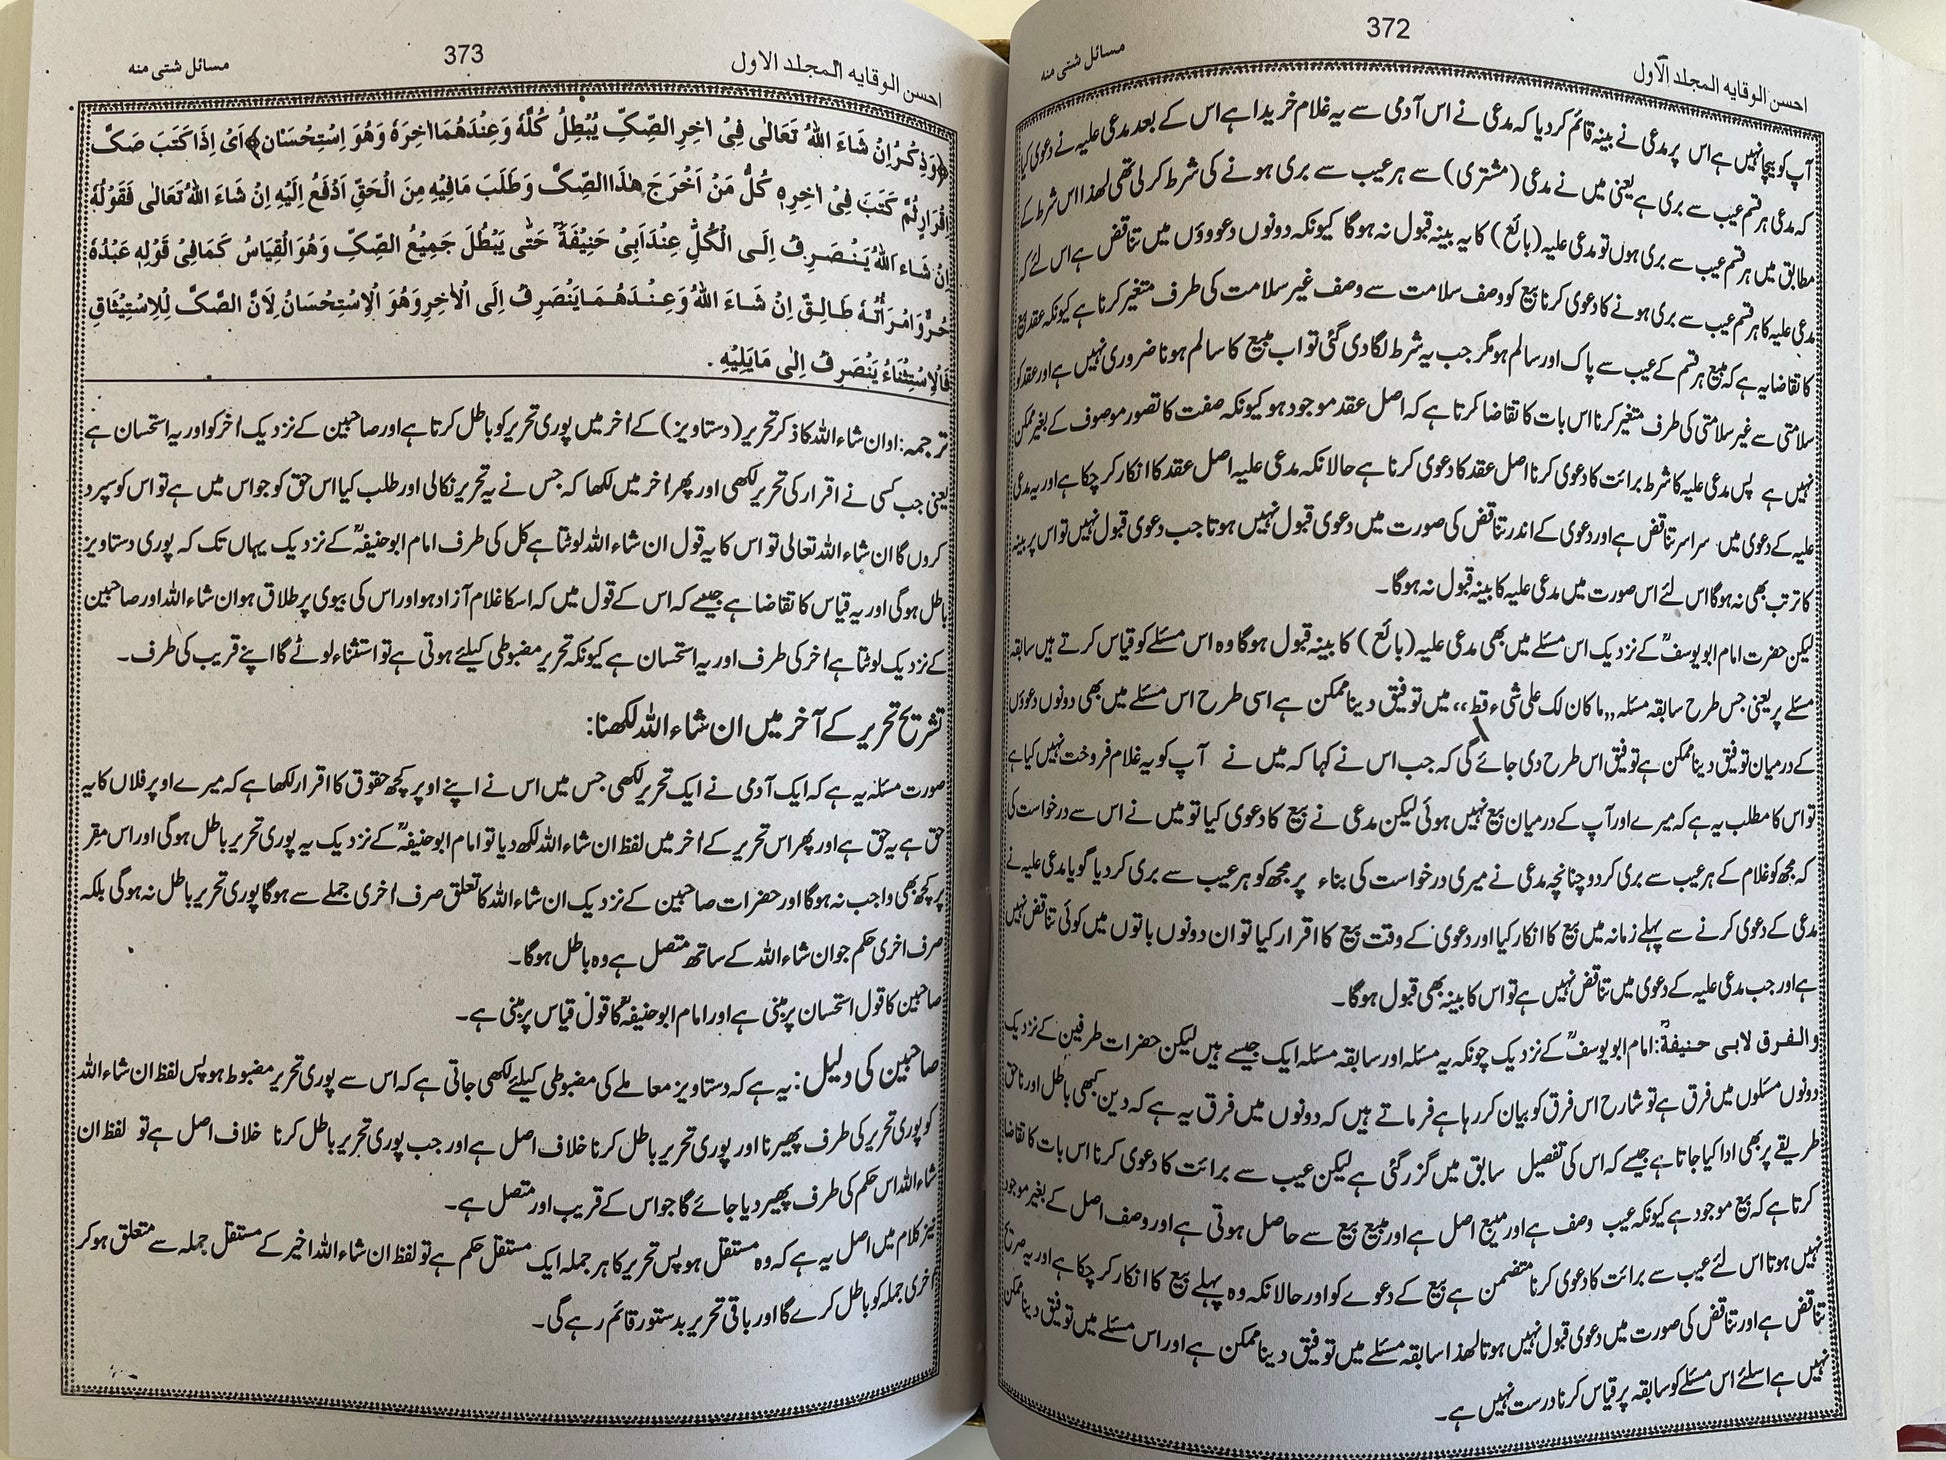 احسن الوقایه المجلد الاول
372
مسائل شتی منه
آپ کو بیچا نہیں ہے اس پر مدعی نے بینہ قائم کر دیا کہ مدعی نے اس آدمی سے یہ غلام خریدا ہے اس کے بعد مدعی علیہ نے دعوی کیا
کہ مدعی ہر قسم عیب سے بری ہے یعنی میں نے مدعی (مشتری) سے ہر عیب سے بری ہونے کی شرط کر لی تھی لھذا اس شرط کے
مطابق میں ہر قسم عیب سے بری ہوں تو مدعی علیہ (بائع) کا یہ بینہ قبول نہ ہوگا کیونکہ دونوں دعووؤں میں تناقض ہے اس لئے کہ
مدعی علیہ کا ہر قسم عیب سے بری ہونے کا دعوی کرنا بیع کو وصف سلامت سے وصف غیر سلامت کی طرف متغیر کرنا ہے کیونکہ عقد بیع
کا تقاضا یہ ہے کہ مبیع ہر قسم کے عیب سے پاک اور سالم ہو مگر جب یہ شرط لگا دی گئی تو اب مبیع کا سالم ہونا ضروری نہیں ہے اور عقد کو
سلامتی سے غیر سلامتی کی طرف متغیر کرنا اس بات کا تقاضا کرتا ہے کہ اصل عقد موجود ہو کیونکہ صفت کا تصور موصوف کے بغیر ممکن
نہیں ہے پس مدعی علیہ کا شرط برائت کا دعوی کرنا اصل عقد کا دعوی کرنا ہے حالانکہ مدعی علیہ اصل عقد کا انکار کر چکا ہے اور یہ مدعی
علیہ کے دعوی میں سراسر تناقض ہے اور دعوی کے اندر تناقض کی صورت میں دعوی قبول نہیں ہوتا جب دعوی قبول نہیں تو اس پر بینہ
کا ترتب بھی نہ ہوگا اس لئے اس صورت میں مدعی علیہ کا بینہ قبول نہ ہوگا۔
لیکن حضرت امام ابو یوسفؒ کے نزدیک اس مسئلے میں بھی مدعی علیہ (بائع) کا بینہ قبول ہوگا وہ اس مسئلے کو قیاس کرتے ہیں سابقہ
مسئلے پر یعنی جس طرح سابقہ مسئلہ ,,ما کان لک علی شیء قط،، میں توفیق دینا ممکن ہے اسی طرح اس مسئلے میں بھی دونوں دعوؤں
کے درمیان توفیق دینا ممکن ہے توفیق اس طرح دی جائے گی کہ جب اس نے کہا کہ میں نے آپ کو یہ غلام فروخت نہیں کیا ہے
تو اس کا مطلب یہ ہے کہ میرے اور آپ کے درمیان بیع نہیں ہوئی لیکن مدعی نے بیع کا دعوی کیا تو میں نے اس سے درخواست کی
کہ مجھ کو غلام کے ہر عیب سے بری کر دو چنانچہ مدعی نے میری درخواست کی بناء پر مجھ کو ہر عیب سے بری کر دیا گویا مدعی علیہ نے
مدعی کے دعوی کرنے سے پہلے زمانہ میں بیع کا انکار کیا اور دعوی کے وقت بیع کا اقرار کیا تو ان دونوں باتوں میں کوئی تناقض نہیں
ہے اور جب مدعی علیہ کے دعوی میں تناقض نہیں ہے تو اس کا بینہ بھی قبول ہوگا۔
والفرق لابی حنیفةؒ: امام ابو یوسفؒ کے نزدیک چونکہ یہ مسئلہ اور سابقہ مسئلہ ایک جیسے ہیں لیکن حضرات طرفین کے نزدیک
دونوں مسئلوں میں فرق ہے تو شارح اس فرق کو بیان کر رہا ہے فرماتے ہیں کہ دونوں میں فرق یہ ہے کہ دین کبھی باطل اور ناحق
طریقے پر بھی ادا کیا جاتا ہے جیسے کہ اس کی تفصیل سابق میں گزر گئی ہے لیکن عیب سے برائت کا دعوی کرنا اس بات کا تقاضا
کرتا ہے کہ بیع موجود ہے کیونکہ عیب وصف ہے اور مبیع اصل ہے اور مبیع بیع سے حاصل ہوتی ہے اور وصف اصل کے بغیر موجود
نہیں ہوتا اس لئے عیب سے برائت کا دعوی کرنا متضمن ہے بیع کے دعوے کو اور حالانکہ وہ پہلے بیع کا انکار کر چکا ہے اور یہ صریح
تناقض ہے اور تناقض کی صورت میں دعوی قبول نہیں ہوتا لھذا سابقہ مسئلے میں توفیق دینا ممکن ہے اور اس مسئلے میں توفیق دینا ممکن
نہیں ہے اسلئے اس مسئلے کو سابقہ پر قیاس کرنا درست نہیں ہے۔
احسن الوقایه المجلد الاول
373
مسائل شتی منه
﴿وَذِكْرُ اِنْ شَاءَ اللهُ تَعَالٰى فِىْ اٰخِرِ الصَّكِّ يُبْطِلُ كُلَّهٗ وَعِنْدَهُمَا اٰخِرَهٗ وَهُوَ اِسْتِحْسَان﴾ اَىْ اِذَا كَتَبَ صَكَّ
اِقْرَارٍ ثُمَّ كَتَبَ فِىْ اٰخِرِهٖ كُلُّ مَنْ اَخْرَجَ هٰذَا الصَّكَّ وَطَلَبَ مَافِيْهِ مِنَ الْحَقِّ اَدْفَعُ اِلَيْهِ اِنْ شَاءَ اللهُ تَعَالٰى فَقَوْلُهٗ
اِنْ شَاءَ اللهُ يَنْصَرِفُ اِلَى الْكُلِّ عِنْدَ اَبِىْ حَنِيْفَةَؒ حَتّٰى يَبْطُلَ جَمِيْعُ الصَّكِّ وَهُوَ الْقِيَاسُ كَمَا فِىْ قَوْلِهٖ عَبْدُهٗ
حُرٌّ وَامْرَأَتُهٗ طَالِقٌ اِنْ شَاءَ اللهُ وَعِنْدَهُمَا يَنْصَرِفُ اِلَى الْاٰخِرِ وَهُوَ الْاِسْتِحْسَانُ لِاَنَّ الصَّكَّ لِلْاِسْتِيْثَاقِ
فَالْاِسْتِثْنَاءُ يَنْصَرِفُ اِلٰى مَا يَلِيْهِ .
ترجمہ: اوان شاء اللہ کا ذکر تحریر (دستاویز) کے اٰخر میں پوری تحریر کو باطل کرتا ہے اور صاحبین کے نزدیک اٰخر کو اور یہ استحسان ہے
یعنی جب کسی نے اقرار کی تحریر لکھی اور پھر اٰخر میں لکھا کہ جس نے یہ تحریر نکالی اور طلب کیا اس حق کو جو اس میں ہے تو اس کو سپرد
کروں گا ان شاء اللہ تعالی تو اس کا یہ قول ان شاء اللہ لوٹتا ہے کل کی طرف امام ابو حنیفہؒ کے نزدیک یہاں تک کہ پوری دستاویز
باطل ہوگی اور یہ قیاس کا تقاضا ہے جیسے کہ اس کے قول میں کہ اسکا غلام آزاد ہو اور اس کی بیوی پر طلاق ہو ان شاء اللہ اور صاحبین
کے نزدیک لوٹتا ہے اٰخر کی طرف اور یہ استحسان ہے کیونکہ تحریر مضبوطی کیلئے ہوتی ہے تو استثناء لوٹے گا اپنے قریب کی طرف۔
تشریح تحریر کے آخر میں ان شاء اللہ لکھنا:
صورت مسئلہ یہ ہے کہ ایک آدمی نے ایک تحریر لکھی جس میں اس نے اپنے اوپر کچھ حقوق کا اقرار لکھا ہے کہ میرے اوپر فلاں کا یہ
حق ہے یہ حق ہے اور پھر اس تحریر کے اٰخر میں لفظ ان شاء اللہ لکھ دیا تو امام ابو حنیفہؒ کے نزدیک یہ پوری تحریر باطل ہوگی اور اس مقِر
پر کچھ بھی واجب نہ ہوگا اور حضرات صاحبین کے نزدیک ان شاء اللہ کا تعلق صرف اٰخری جملے سے ہوگا پوری تحریر باطل نہ ہوگی بلکہ
صرف اخری حکم جو ان شاء اللہ کے ساتھ متصل ہے وہ باطل ہوگا۔
صاحبین کا قول استحسان پر مبنی ہے اور امام ابو حنیفہؒ کا قول قیاس پر مبنی ہے۔
صاحبین کی دلیل: یہ ہے کہ دستاویز معاملے کی مضبوطی کیلئے لکھی جاتی ہے کہ اس سے پوری تحریر مضبوط ہو پس لفظ ان شاء اللہ
کو پوری تحریر کی طرف پھیرنا اور پوری تحریر باطل کرنا خلاف اصل ہے اور جب پوری تحریر باطل کرنا خلاف اصل ہے تو لفظ ان
شاء اللہ اس حکم کی طرف پھیر دیا جائے گا جو اس کے قریب اور متصل ہے۔
نیز کلام میں اصل یہ ہے کہ وہ مستقل ہو پس تحریر کا ہر جملہ ایک مستقل حکم ہے تو لفظ ان شاء اللہ اخیر کے مستقل جملہ سے متعلق ہو کر
اٰخری جملہ کو باطل کرے گا اور باقی تحریر بدستور قائم رہے گی۔